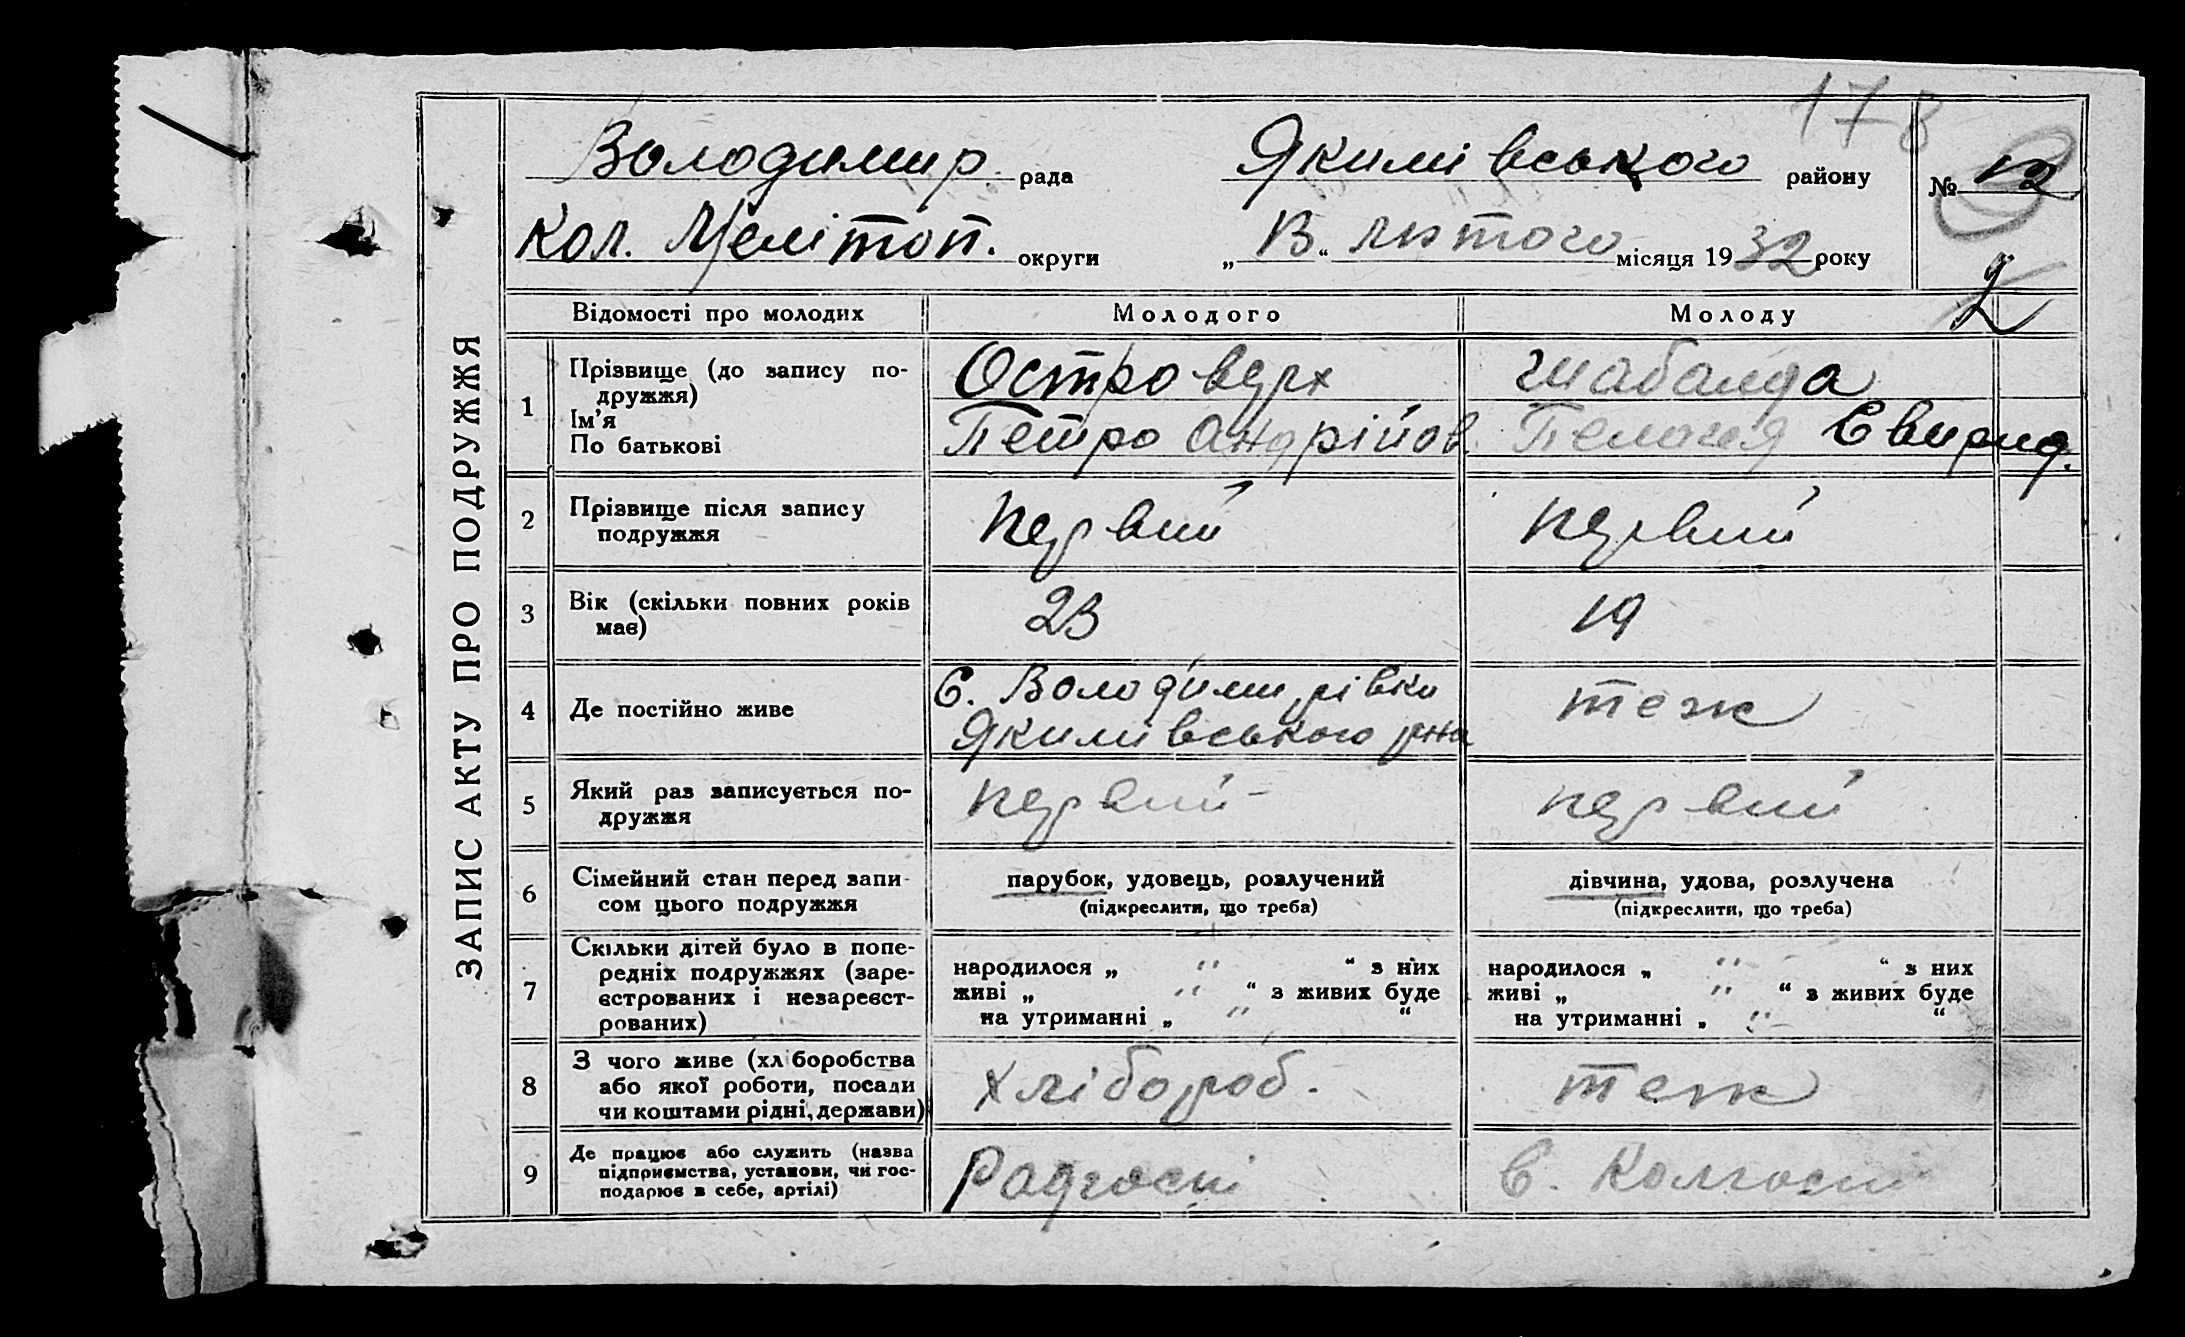 178
Володимир. рада Якимівського району № 12
Кол. Меліտоп. округи „13“ лютого місяця 1932 року
2
ЗАПИС АКТУ ПРО ПОДРУЖЖЯ
Відомості про молодих Молодого Молоду
1 Прізвище (до запису по-
дружжя)
Ім'я
По батькові
Островерх Шабалда
Петро Андрійов. Пелагея Свирид.
2 Прізвище після запису
подружжя
первий первий
3 Вік (скільки повних років
має)
23 19
4 Де постійно живе
С. Володимирівки
Якимівського р-на
теж
5 Який раз записується по-
дружжя
первий первий
6 Сімейний стан перед запи-
сом цього подружжя
парубок, удовець, розлучений
(підкреслити, що треба)
дівчина, удова, розлучена
(підкреслити, що треба)
7 Скільки дітей було в попе-
редніх подружжях (заре-
єстрованих і незареєст-
рованих)
народилося „ " “ з них
живі „ " “ з живих буде
на утриманні „ " “
народилося „ " “ з них
живі „ " “ з живих буде
на утриманні „ " “
8 З чого живе (хліборобства
або якої роботи, посади
чи коштами рідні, держави)
хлібороб. теж
9 Де працює або служить (назва
підприємства, установи, чи гос-
подарює в себе, артілі)
Радгоспі в. Колгоспі